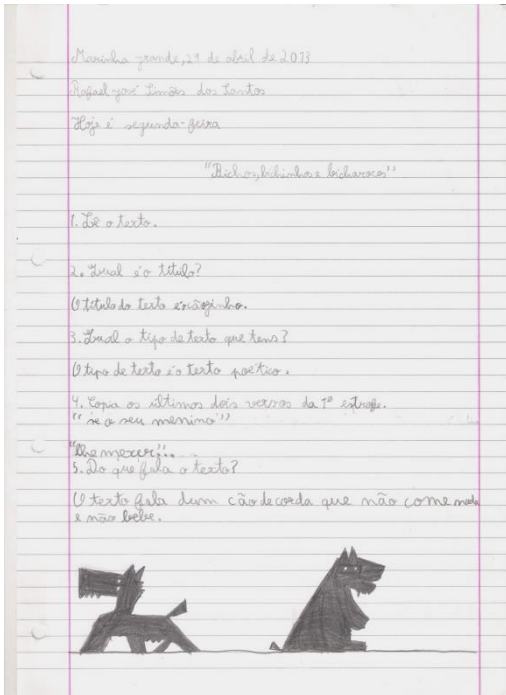 Marinha grande, 29 de abril de 2013
Rafael José Simões dos Santos
Hoje é segunda-feira
"Bichos, bichinhos e bicharocos"
1. Lê o texto.
2. Qual é o título?
O título do texto é o cãozinho.
3. Qual o tipo de texto que tens?
O tipo de texto é o texto poético.
4. Copia os últimos dois versos da 1ª estrofe.
"se o seu menino"
"lhe mexer"...
5. Do que fala o texto?
O texto fala dum cão de corda que não come nada
e não bebe.